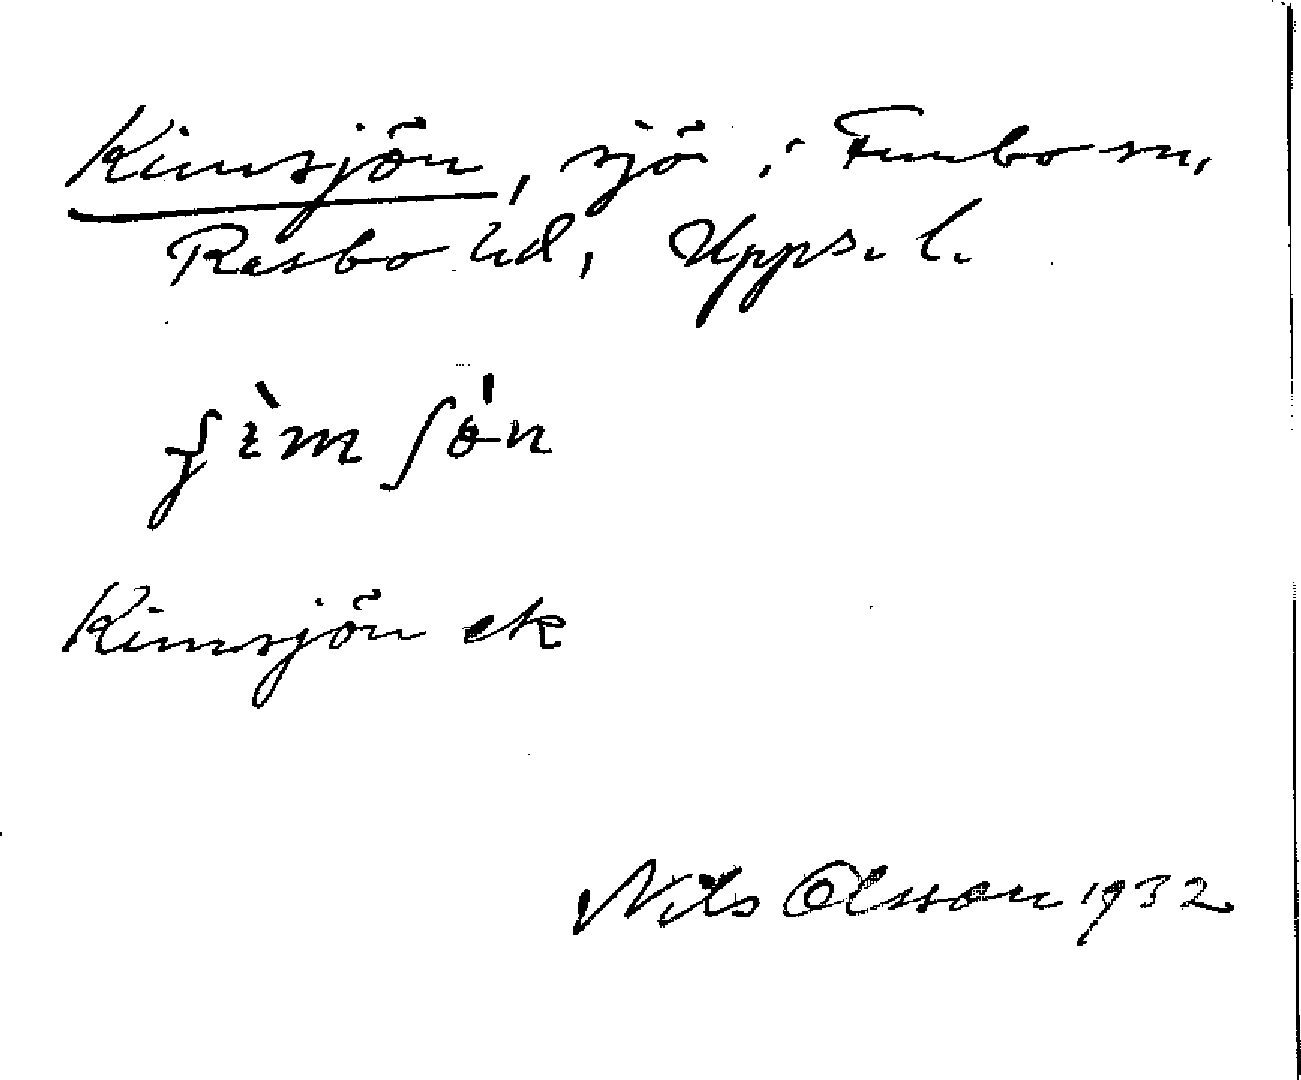 Kimsjön, sjö i Funbo sn,
Rasbo hd, Upps. l.
ʃìm ʃө́n
Kimsjön ek
Nils Olsson 1932